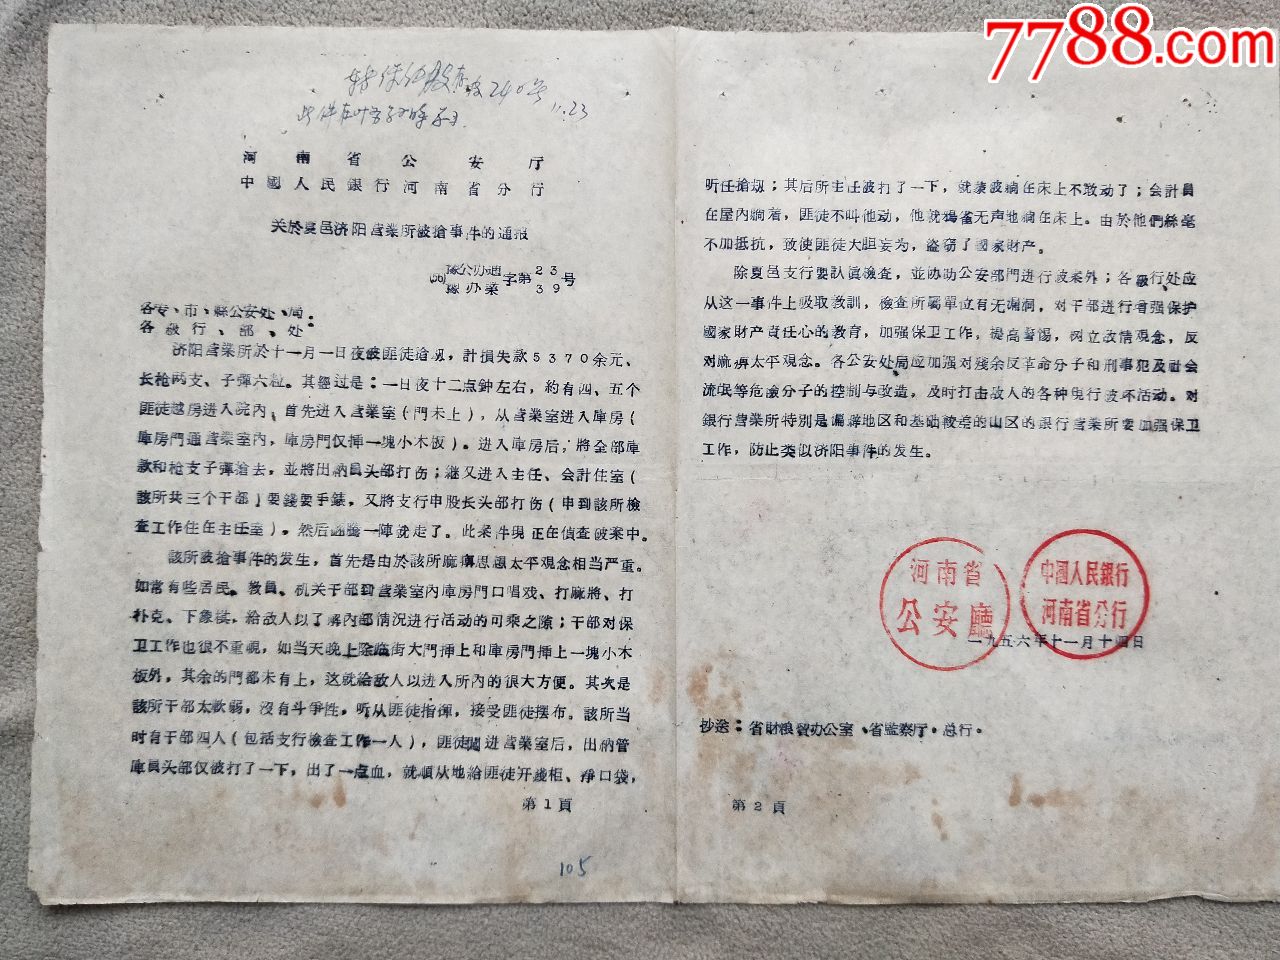 7788.com
11.23
河南省公安厅
中國人民銀行河南省分行
关於夏邑济阳营業所被搶事件的通报
(56)豫公办通字第23号
豫办業39
各专、市、縣公安处、局:
各級行、部、处
济阳营業所於十一月一日夜被匪徒搶刼，計損失款5370余元、
长枪两支、子彈六粒。其經过是：一日夜十二点鈡左右，約有四、五个
匪徒越房进入院內，首先进入营業室（門未上），从营業室进入庫房（
庫房門通营業室內，庫房門仅挿一塊小木板）。进入庫房后，將全部庫
款和枪支子彈搶去，並將出納員头部打伤；継又进入主任、会計住室（
該所共三个干部）要錢要手錶，又將支行申股长头部打伤（申到該所檢
查工作住在主任室）。然后翻騰一陣就走了。此案件現正在偵查破案中。
該所被搶事件的发生，首先是由於該所麻痹思想太平观念相当严重。
如常有些居民、敎員、机关干部到营業室內庫房門口唱戏、打麻將、打
扑克、下象棋，給敌人以了解內部情况进行活动的可乘之隙；干部对保
卫工作也很不重視，如当天晚上除临街大門挿上和庫房門挿上一塊小木
板外，其余的門都未有上，这就給敌人以进入所內的很大方便。其次是
該所干部太軟弱，沒有斗爭性，听从匪徒指揮，接受匪徒摆布。該所当
时有干部四人（包括支行檢查工作一人），匪徒闖进营業室后，出納管
庫員头部仅被打了一下，出了一点血，就順从地給匪徒开錢柜、凈口袋，
第1頁
105
听任搶刼；其后所主任被打了一下，就裝被躺在床上不敢动了；会計員
在屋內躺着，匪徒不叫他动，他就鴉雀无声地躺在床上。由於他們絲毫
不加抵抗，致使匪徒大胆妄为，盜窃了國家財产。
除夏邑支行要认真檢查，並协助公安部門进行破案外；各級行处应
从这一事件上吸取教訓，檢查所屬單位有无漏洞，对干部进行增强保护
國家財产責任心的教育，加强保卫工作，提高警惕，树立敌情观念，反
对麻痹太平观念。各公安处局应加强对残余反革命分子和刑事犯及社会
流氓等危險分子的控制与改造，及时打击敌人的各种現行破坏活动。对
銀行营業所特別是偏僻地区和基础較差的山区的銀行营業所要加强保卫
工作，防止类似济阳事件的发生。
河南省
公安廳
中國人民銀行
河南省分行
一九五六年十一月十四日
抄送：省財粮貿办公室、省監察厅、总行。
第2頁